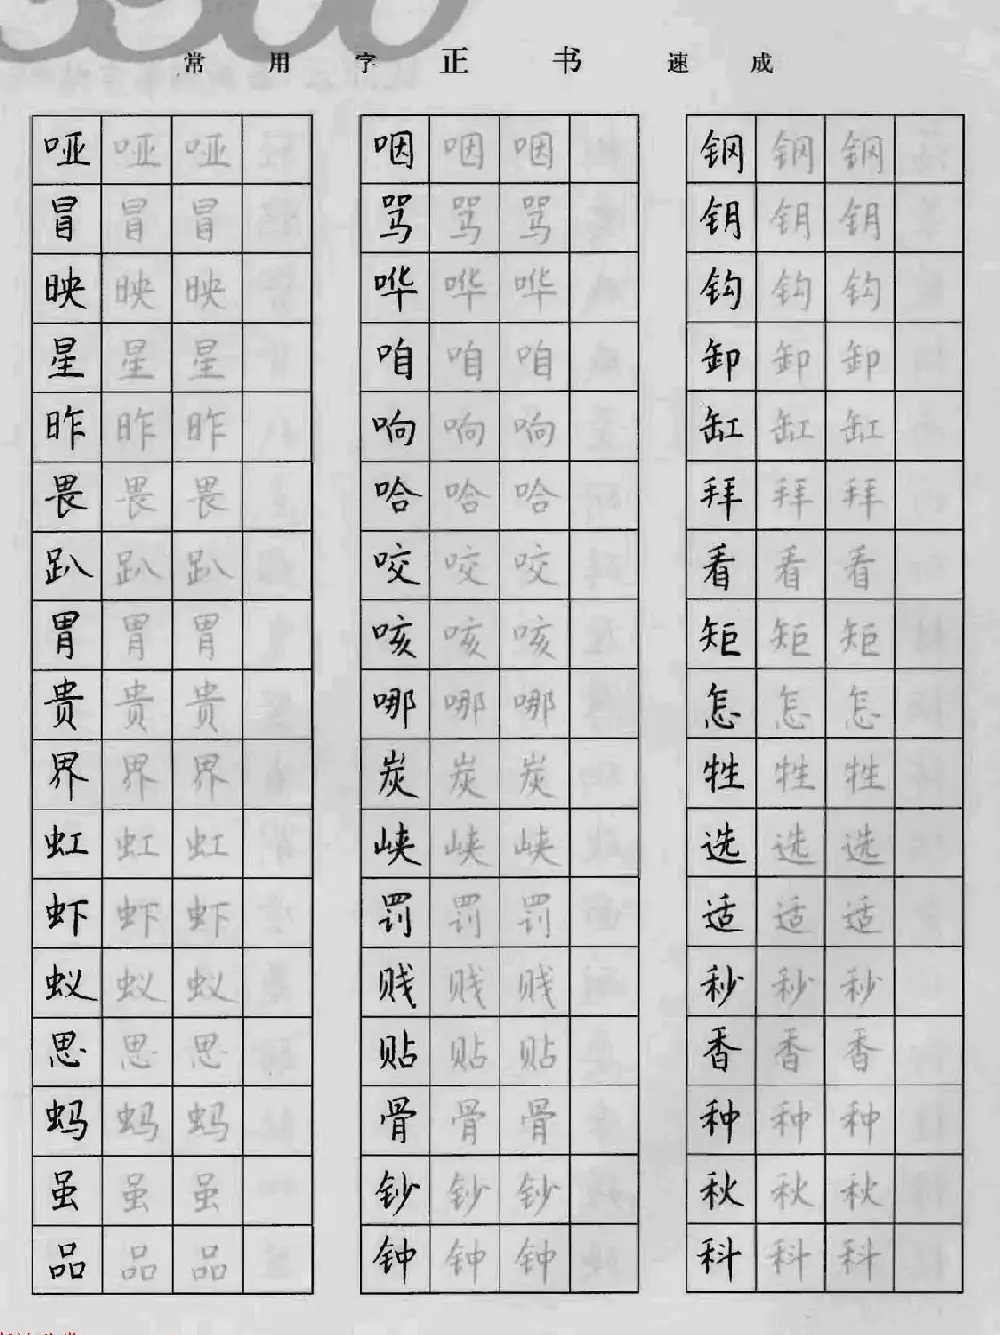 常用字正书速成
哑 哑 哑 咽 咽 咽 钢 钢 钢
冒 冒 冒 骂 骂 骂 钥 钥 钥
映 映 映 哗 哗 哗 钩 钩 钩
星 星 星 咱 咱 咱 卸 卸 卸
昨 昨 昨 响 响 响 缸 缸 缸
畏 畏 畏 哈 哈 哈 拜 拜 拜
趴 趴 趴 咬 咬 咬 看 看 看
胃 胃 胃 咳 咳 咳 矩 矩 矩
贵 贵 贵 哪 哪 哪 怎 怎 怎
界 界 界 炭 炭 炭 牲 牲 牲
虹 虹 虹 峡 峡 峡 选 选 选
虾 虾 虾 罚 罚 罚 适 适 适
蚁 蚁 蚁 贱 贱 贱 秒 秒 秒
思 思 思 贴 贴 贴 香 香 香
蚂 蚂 蚂 骨 骨 骨 种 种 种
虽 虽 虽 钞 钞 钞 秋 秋 秋
品 品 品 钟 钟 钟 科 科 科